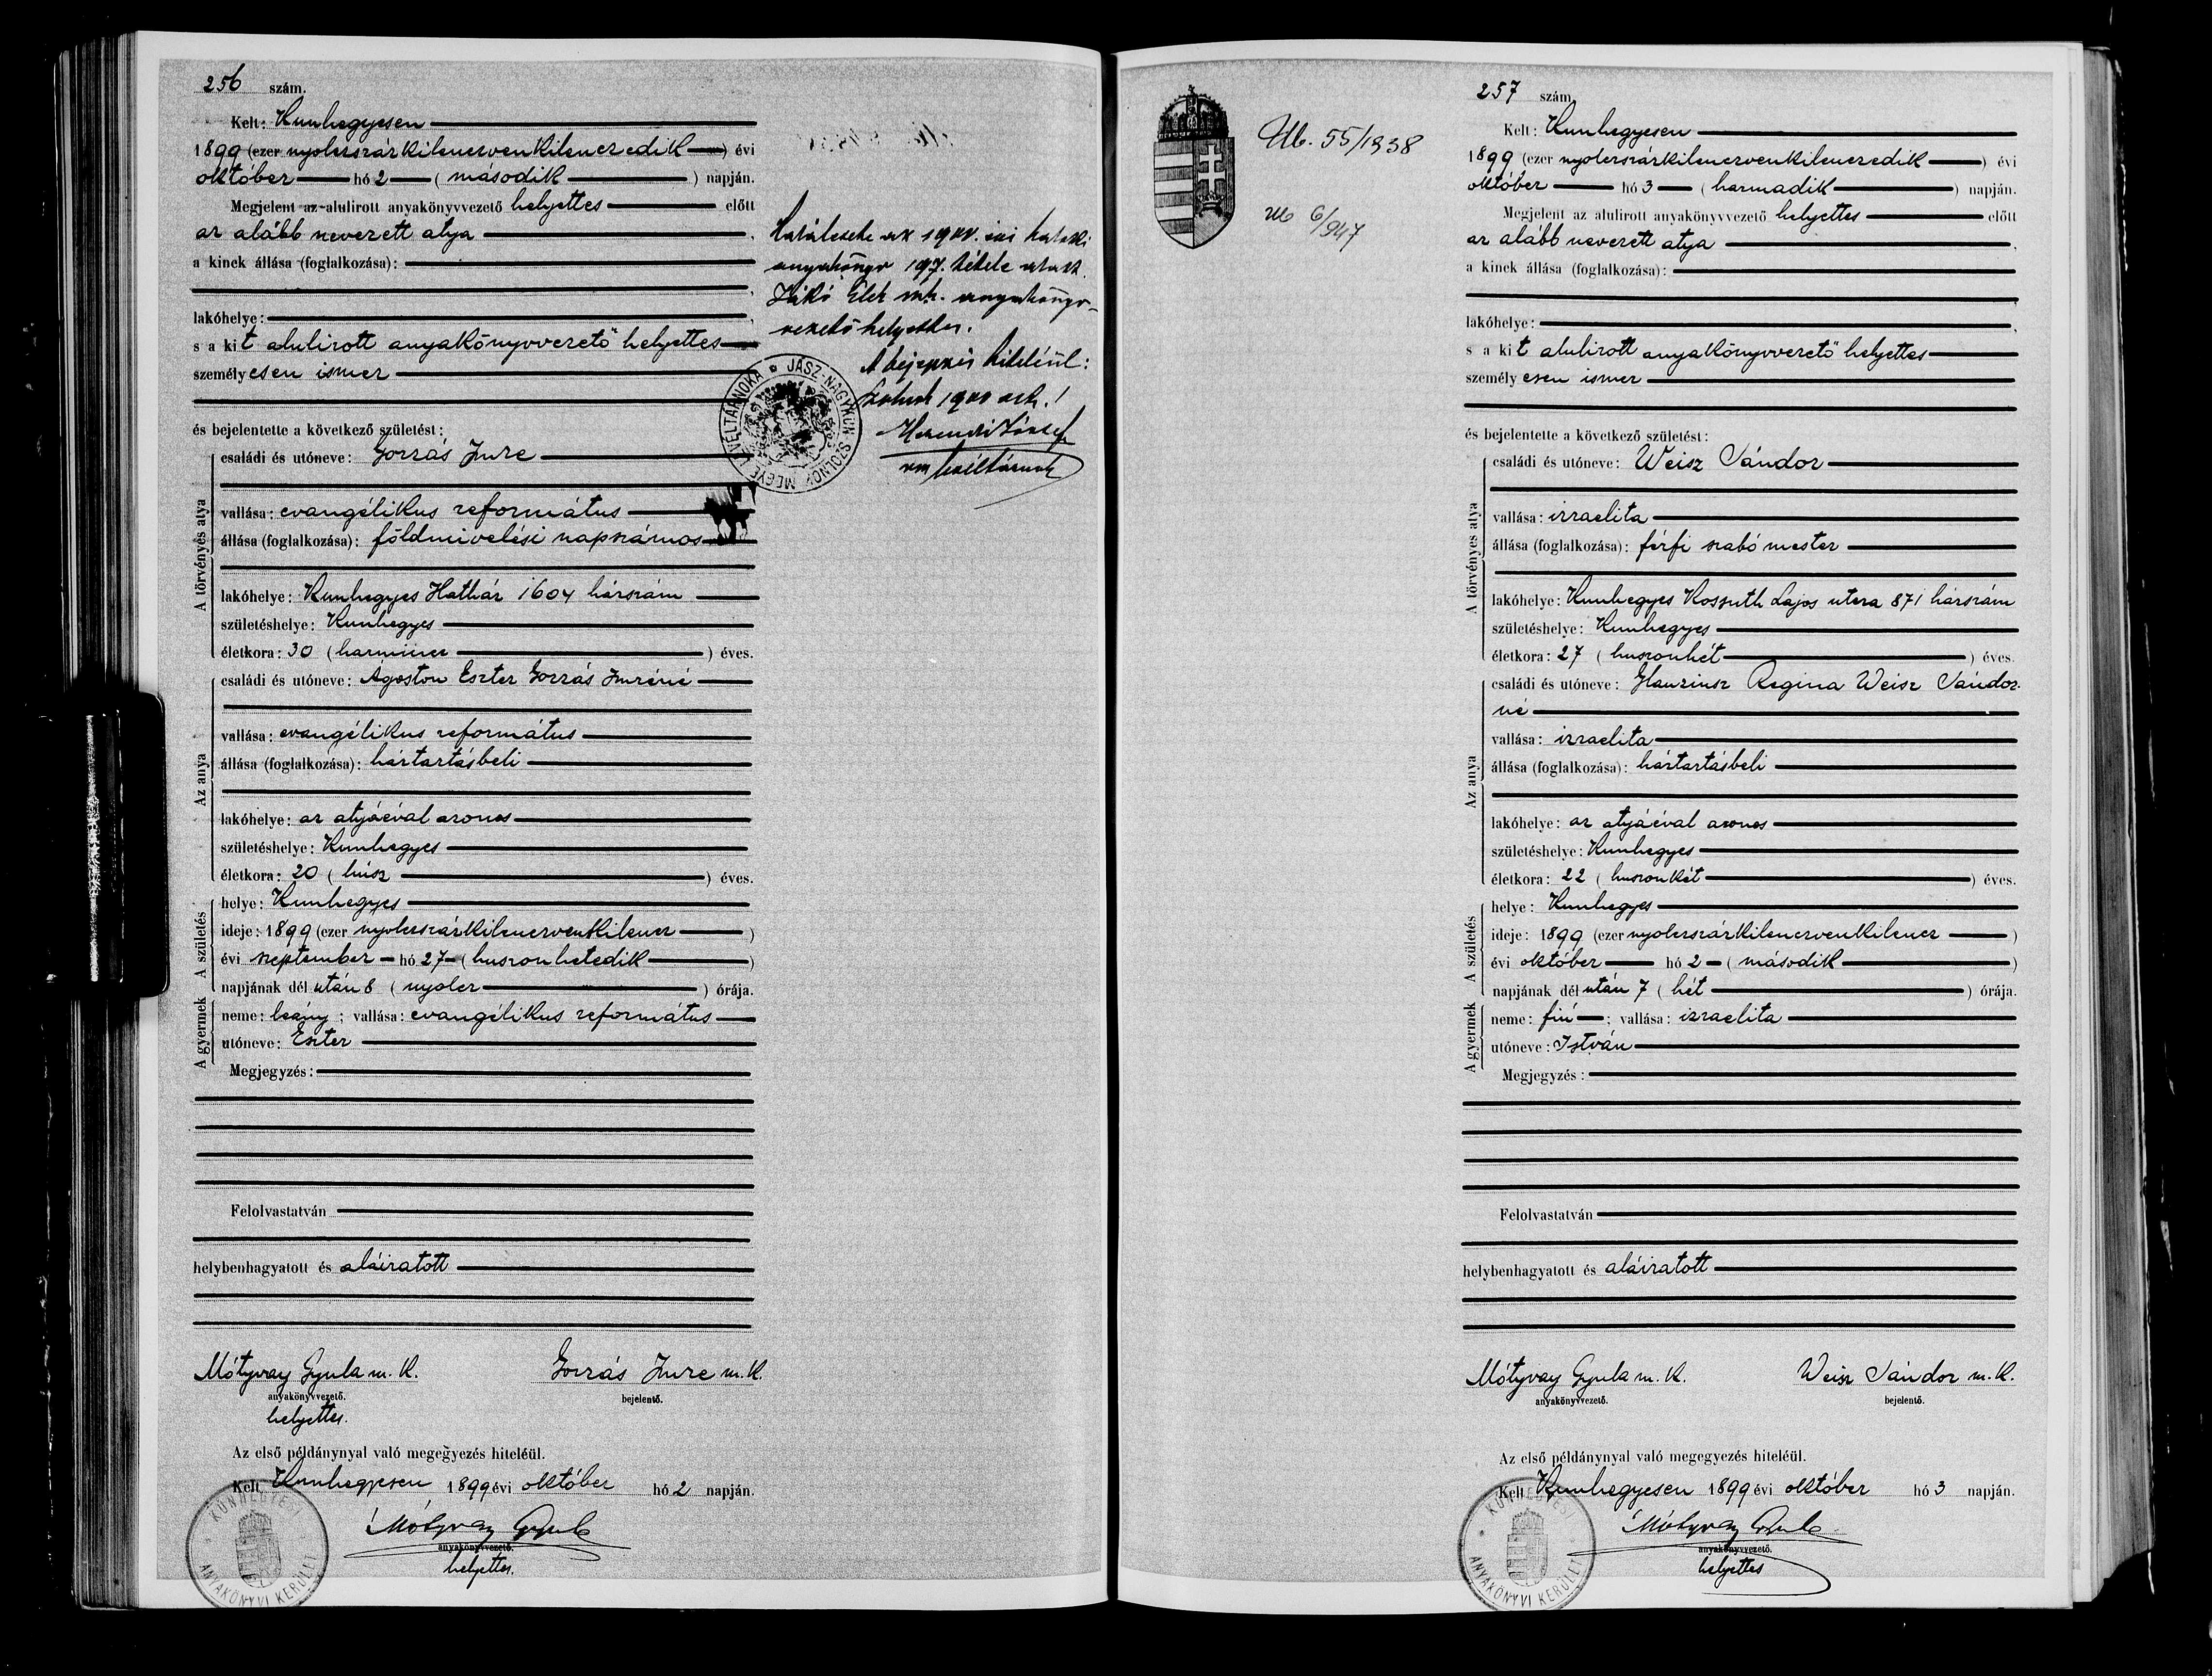 256 szám.
Kelt: Kunhegyesen
1899 (ezer nyolczszázkilenczvenkilenczedik) évi
október hó 2 (második) napján.
Megjelent az alulirott anyakönyvvezető helyettes előtt
az alább nevezett atya,
a kinek állása (foglalkozása):
lakóhelye:
s a kit alulirott anyakönyvvezető helyettes
személyesen ismer
és bejelentette a következő születést:
A törvényes atya
családi és utóneve: Gorzás Imre
vallása: evangélikus református
állása (foglalkozása): földmivelési napszámos
lakóhelye: Kunhegyes Hatház 1604 házszám
születéshelye: Kunhegyes
életkora: 30 (harmincz) éves.
Az anya
családi és utóneve: Ágoston Eszter Gorzás Imréné
vallása: evangélikus református
állása (foglalkozása): háztartásbeli
lakóhelye: az atyáéval azonos
születéshelye: Kunhegyes
életkora: 20 (húsz) éves.
A születés
helye: Kunhegyes
ideje: 1899 (ezer nyolczszázkilenczvenkilencz)
évi szeptember hó 27 (huszonhetedik)
napjának dél után 8 (nyolcz) órája.
A gyermek
neme: leány; vallása: evangélikus református
utóneve: Eszter
Megjegyzés:
Felolvastatván
helybenhagyatott és aláiratott
Mótyvay Gyula m. k. Gorzás Imre m. k.
anyakönyvvezető. bejelentő.
helyettes.
Az első példánynyal való megegyezés hiteléül.
Kelt Kunhegyesen 1899 évi október hó 2 napján.
Mótyvay Gyula
anyakönyvvezető.
helyettes.
KUNHEGYESI ANYAKÖNYVI KERÜLET
anyakönyv 197. tétele alatt.
Jákó Elek mh. anyakönyv-
vezető helyettes.
A bejegyzés hiteléül:
JÁSZ-NAGYKUN SZOLNOK MEGYE LEVÉLTÁRNOKA
257 szám
Ub. 55/1938
Ub 6/947
Kelt: Kunhegyesen
1899 (ezer nyolczszázkilenczvenkilenczedik) évi
október hó 3 (harmadik) napján.
Megjelent az alulirott anyakönyvvezető helyettes előtt
az alább nevezett atya,
a kinek állása (foglalkozása):
lakóhelye:
s a kit alulirott anyakönyvvezető helyettes
személyesen ismer
és bejelentette a következő születést:
A törvényes atya
családi és utóneve: Weisz Sándor
vallása: izraelita
állása (foglalkozása): férfi szabó mester
lakóhelye: Kunhegyes Kossuth Lajos utcza 871 házszám
születéshelye: Kunhegyes
életkora: 27 (huszonhét) éves.
Az anya
családi és utóneve: Glanzinsz Regina Weisz Sándor-
né
vallása: izraelita
állása (foglalkozása): háztartásbeli
lakóhelye: az atyáéval azonos
születéshelye: Kunhegyes
életkora: 22 (huszonkét) éves.
A születés
helye: Kunhegyes
ideje: 1899 (ezer nyolczszázkilenczvenkilencz)
évi október hó 2 (második)
napjának dél után 7 (hét) órája.
A gyermek
neme: fiú; vallása: izraelita
utóneve: István
Megjegyzés:
Felolvastatván
helybenhagyatott és aláiratott
Mótyvay Gyula m. k. Weisz Sándor m. k.
anyakönyvvezető. bejelentő.
Az első példánynyal való megegyezés hiteléül.
Kelt Kunhegyesen 1899 évi október hó 3 napján.
Mótyvay Gyula
anyakönyvvezető.
helyettes
KUNHEGYESI ANYAKÖNYVI KERÜLET